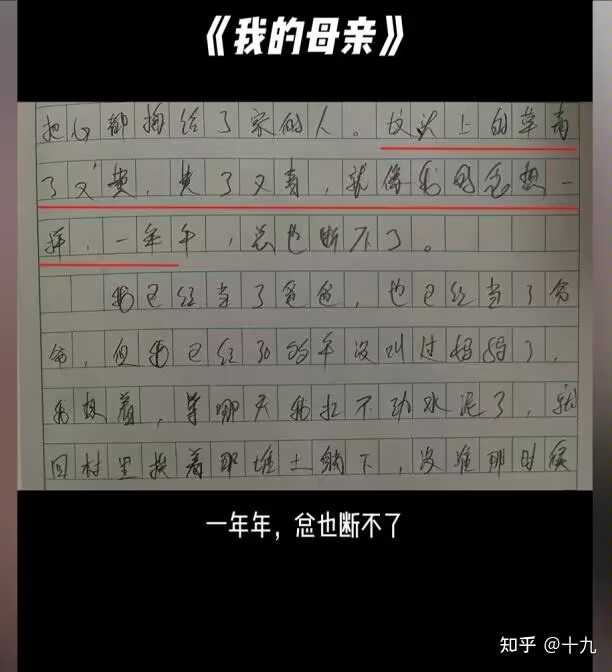 《我的母亲》
把心都掏给了家的人。坟头上的草青
了又黄，黄了又青，就像我的念想一
样，一年年，总也断不了。
我已经当了爸爸，也已经当了爷
爷，但我已经30多年没叫过妈妈了，
我想着，等哪天我扛不动水泥了，就
回村里挨着那堆土躺下，没准那时候
一年年，总也断不了
知乎 @十九